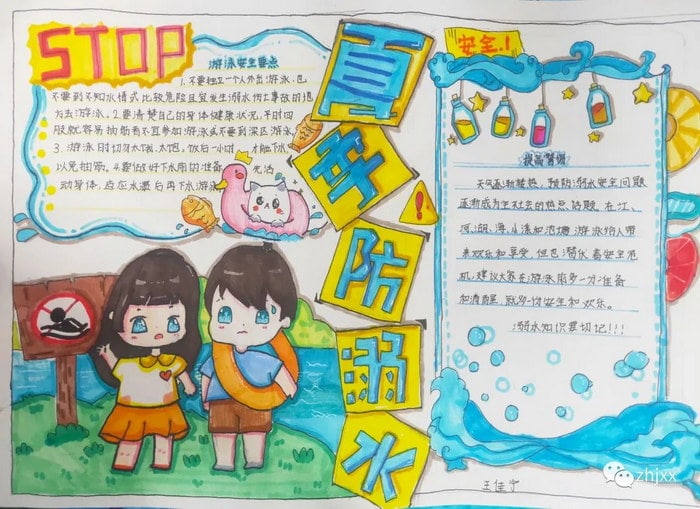 STOP
游泳安全重点
1.不要独立一个人外出游泳,也
不要到不知水情或比较危险且宜发生溺水伤亡事故的地
方去游泳。2.要清楚自己的身体健康状况,平时四
肢就容易抽筋者不宜参加游泳或不要到深区游泳。
3.游泳时切勿太饿、太饱。饭后一小时才能下水,
以免抽筋。4.要做好下水前的准备,先活
动身体,适应水温后再下水游泳
夏季防溺水
安全!
提高警惕
天气逐渐炎热,预防溺水安全问题
逐渐成为全社会的热点话题。在江、
河、湖、海、小溪和池塘游泳给人带
来欢乐和享受,但也潜伏着安全危
机,建议大家在游泳前多一分准备
和清醒,就多一份安全和欢乐。
溺水知识要切记!!!
王佳
zhjxx